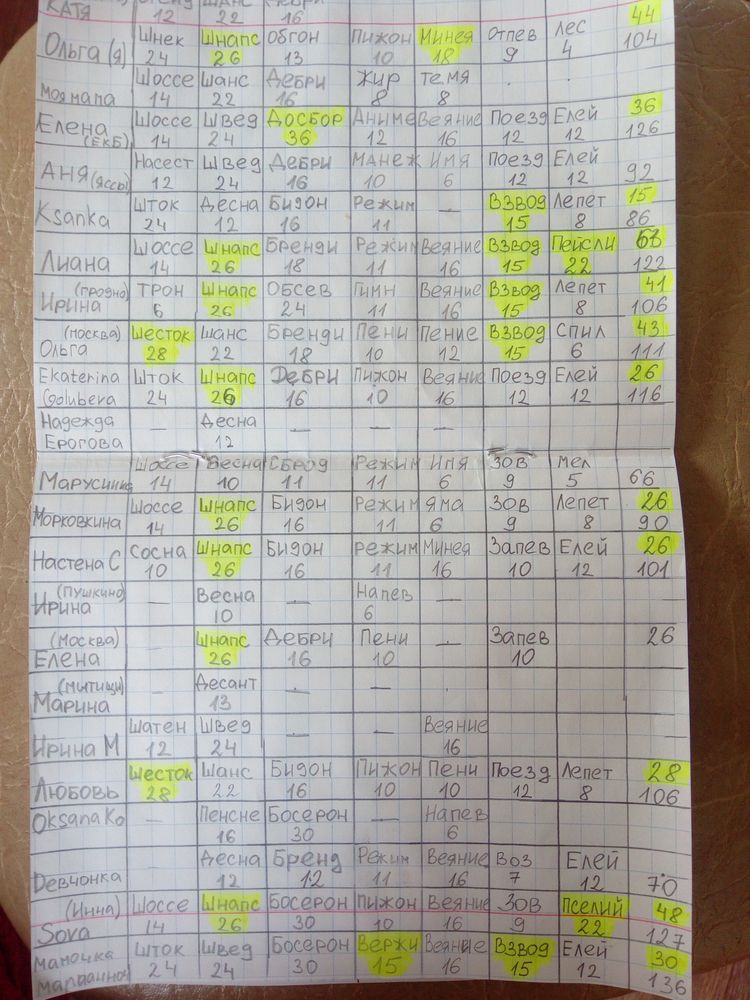 КАТЯ 12 22 16 44
Ольга (Я) Шнек Шнапс Обгон Пижон Минея Отпев Лес 104
24 26 13 10 18 9 4
Моя мама Шоссе Шанс Дебри Жир Темя . .
14 22 16 8 8
Елена Шоссе Швед Досбор Аниме Веяние Поезд Елей 36
(ЕКБ) 14 24 36 12 16 12 12 126
Аня (Яссы) Насест Швед Дебри Манеж Имя Поезд Елей
12 24 16 10 6 12 12 92
Ksanka Шток Десна Бидон Режим — Взвод Лепет 15
24 12 16 11 15 8 86
Лиана Шоссе Шнапс Бренди Режим Веяние Взвод Пейсли
14 26 18 11 16 15 22 122
(Гродно) Трон Шнапс Обсев Гимн Веяние Взвод Лепет 41
Ирина 6 26 24 11 16 15 8 106
(Москва) Шесток Шанс Бренди Пени Пение Взвод Спил 43
Ольга 28 22 18 10 12 15 6 111
Ekaterina Шток Шнапс Дебри Пижон Веяние Поезд Елей 26
Golubeva 24 26 16 10 16 12 12 116
Надежда — Десна — — — — —
Ерогова 12
Шоссе Весна Сброд Режим Имя Зов Мел
14 10 11 11 6 9 5 66
Морковкина Шоссе Шнапс Бидон Режим Яма Зов Лепет 26
14 26 16 11 6 9 8 90
Настена С Сосна Шнапс Бидон Режим Минея Запев Елей 26
10 26 16 11 16 10 12 101
(Пушкино) — Весна — Напев —
Ирина 10 6
(Москва) Шнапс Дебри Пени — Запев 26
Елена 26 16 10 10
(Мытищи) Десант — —
Марина 13
Ирина М Шатен Швед — — Веяние
12 24 16
Любовь Шесток Шанс Бидон Пижон Пени Поезд Лепет 28
28 22 16 10 10 12 8 106
Oksana Ko — Пенсне Босерон — Напев
16 30 6
Девчонка Десна Бренд Режим Веяние Воз Елей
12 12 11 16 7 12 70
(Инна) Шоссе Шнапс Босерон Пижон Веяние Зов Пселий 48
Sova 14 26 30 10 16 9 22 127
Мамочка Шток Швед Босерон Вержи Веяние Взвод Елей 30
24 24 30 15 16 15 12 136